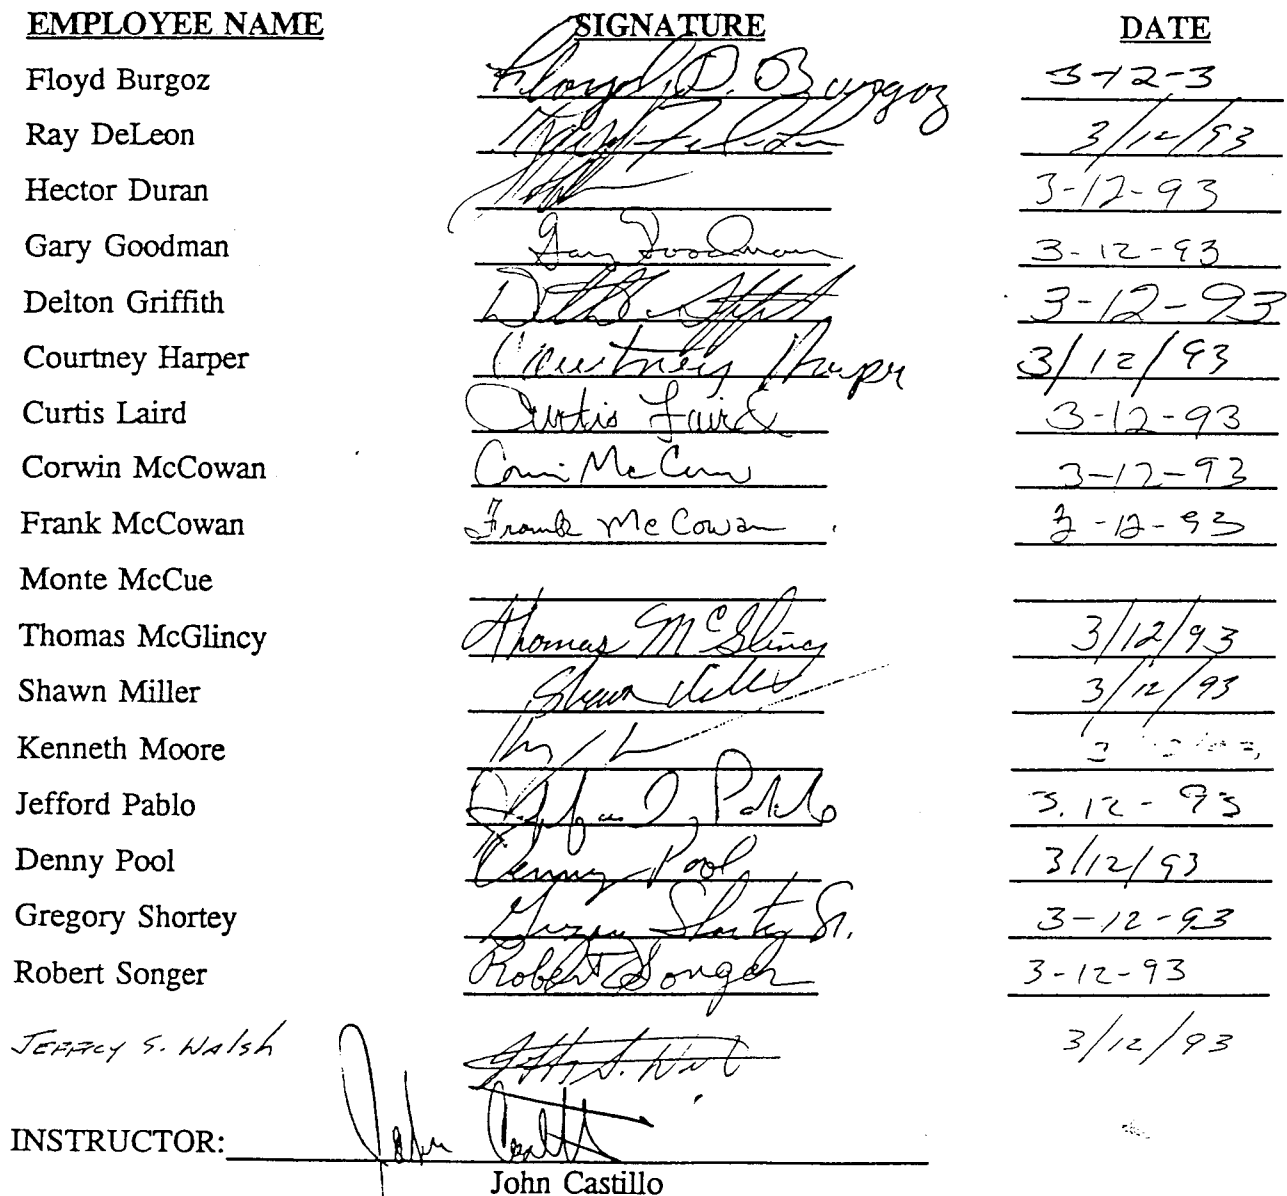 EMPLOYEE NAME SIGNATURE DATE
Floyd Burgoz Floyd D. Burgoz 3-12-3
Ray DeLeon 3/12/93
Hector Duran 3-12-93
Gary Goodman Gary Goodman 3-12-93
Delton Griffith 3-12-93
Courtney Harper Courtney Harper 3/12/93
Curtis Laird Curtis Laird 3-12-93
Corwin McCowan 3-12-93
Frank McCowan Frank McCowan 3-12-93
Monte McCue
Thomas McGlincy Thomas McGlincy 3/12/93
Shawn Miller Shawn Miller 3/12/93
Kenneth Moore
Jefford Pablo Pablo 3.12-93
Denny Pool Denny Pool 3/12/93
Gregory Shortey Shortey Sr. 3-12-93
Robert Songer Robert Songer 3-12-93
Jeffrey S. Walsh 3/12/93
INSTRUCTOR: John
John Castillo